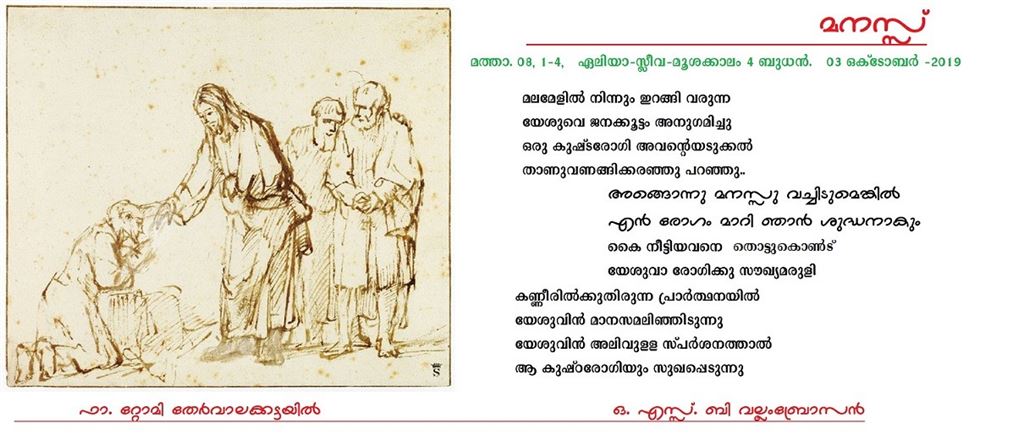 മനസ്സ്
മത്താ. 08, 1-4, ഏലിയാ-സ്ലീവ-മൂശക്കാലം 4 ബുധൻ. 03 ഒക്ടോബർ -2019
മലമേളിൽ നിന്നും ഇറങ്ങി വരുന്ന
യേശുവെ ജനക്കൂട്ടം അനുഗമിച്ചു
ഒരു കുഷ്ടരോഗി അവന്റെയടുക്കൽ
താണുവണങ്ങിക്കരഞ്ഞു പറഞ്ഞു..
അങ്ങൊന്നു മനസ്സു വച്ചിടുമെങ്കിൽ
എൻ രോഗം മാറി ഞാൻ ശുദ്ധനാകും
കൈ നീട്ടിയവനെ തൊട്ടുകൊണ്ട്
യേശുവാ രോഗിക്കു സൗഖ്യമരുളി
കണ്ണീരിൽക്കുതിരുന്ന പ്രാർത്ഥനയിൽ
യേശുവിൻ മാനസമലിഞ്ഞിടുന്നു
യേശുവിൻ അലിവുളള സ്പർശനത്താൽ
ആ കുഷ്ഠരോഗിയും സുഖപ്പെടുന്നു
S
ഫാ. റ്റോമി തേർവാലക്കട്ടയിൽ ഒ. എസ്സ്. ബി വല്ലംബ്രോസൻ